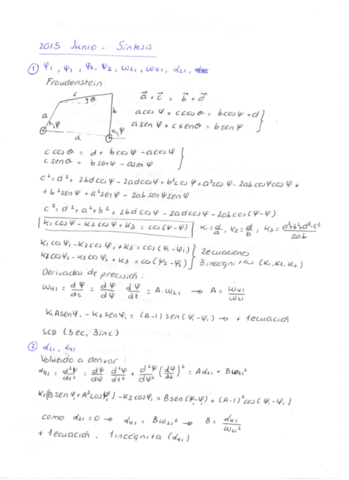 2015 Junio - Síntesis
① φ1, ψ1, φ2, ψ2, ω21, ω41, α21
Freudenstein:
a⃗ + c⃗ = b⃗ + d⃗
a cosφ + c cosθ = b cosψ + d
a senφ + c senθ = b senψ
c cosθ = d + b cosψ - a cosφ
c senθ = b senψ - a senφ
c² = d² + 2bd cosψ - 2ad cosφ + b² cos²ψ + a² cos²φ - 2ab cosφ cosψ +
+ b² sen²ψ + a² sen²φ - 2ab senφ senψ
c² = d² + a² + b² + 2bd cosψ - 2ad cosφ - 2ab cos(φ-ψ)
K1 cosψ - K2 cosφ + K3 = cos(φ-ψ) K1 = d/a, K2 = d/b, K3 =
K1 cosψ1 - K2 cosφ1 + K3 = cos(φ1-ψ1) 2 ecuaciones
K1 cosψ2 - K2 cosφ2 + K3 = cos(φ2-ψ2) 3 incógnitas (K1, K2, K3)
Derivadas de precisión:
ω41 = dψ/dt = dψ/dφ · dφ/dt = A·ω21 → A = ω41/ω21
K1 A senψ1 - K2 senφ1 = (A-1) sen(φ1-ψ1) → + 1 ecuación
SCD (3ec, 3inc)
② α21, α41
Volviendo a derivar:
α41 = d²ψ/dt² = dψ/dφ · d²φ/dt² + d²ψ/dφ² (dφ/dt)² = Aα21 + Bω21²
K1(B senψ1 + A² cosψ1) - K2 cosφ1 = B sen(φ1-ψ1) + (A-1)² cos(φ1-ψ1)
como α21 = 0 → α41 = Bω21² → B = α41/ω21²
+ 1 ecuación, 1 incógnita (α41)